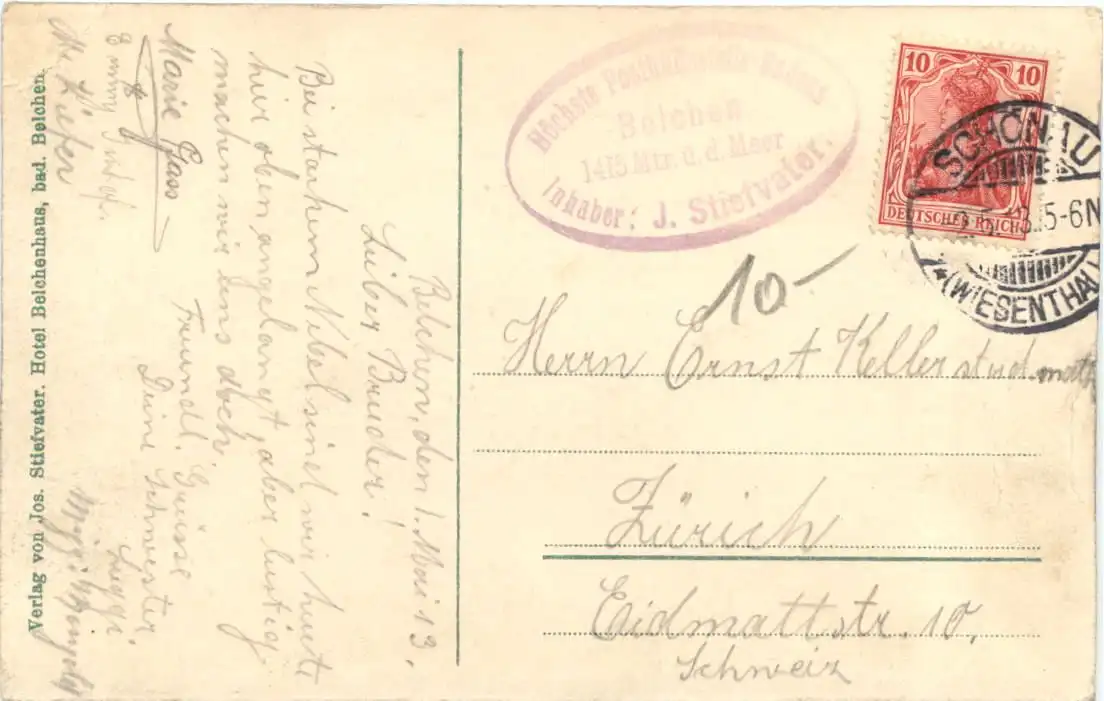 Verlag von Jos. Stiefvater. Hotel Belchenhaus, bad. Belchen.
Belchen, den 1. Mai 13.
Lieber Bruder!
Bei starkem Nebel sind wir heute
hier oben angelangt, aber lustig
machen wir uns doch.
Freundl. Grüsse
Deine Schwester
Marie Gass
Höchste Badens
Belchen
1415 Mtr. ü. d. Meer
Inhaber: J. Stiefvater.
10 10
DEUTSCHES REICH
SCHÖNAU
5-6N
(WIESENTHAL)
10-
Herrn Ernst Keller stud. math
Zürich
Eidmattstr. 10.
Schweiz